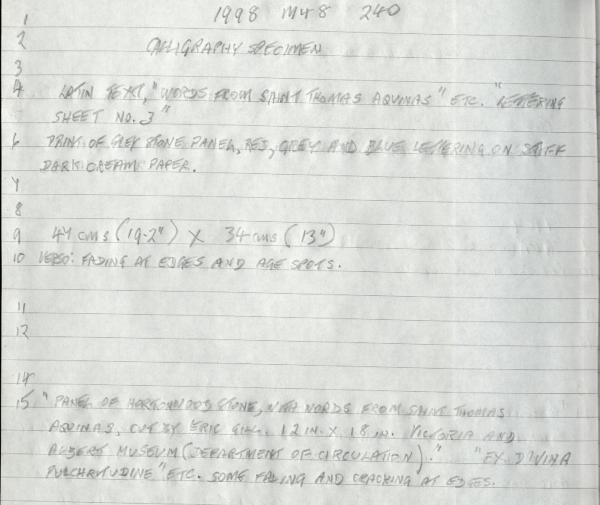 1 1998 M48 240
2 CALLIGRAPHY SPECIMEN
3
4 LATIN TEXT, "WORDS FROM SAINT THOMAS AQUINAS" ETC. "LETTERING
SHEET NO. 3"
6 PRINT OF GREY STONE PANEL, RED, GREY AND BLUE LETTERING ON STIFF
DARK CREAM PAPER.
7
8
9 49 cms (19.2") X 34 cms (13")
10 VERSO: FADING AT EDGES AND AGE SPOTS.
11
12
14
15 "PANEL OF HOPTONWOOD STONE, WITH WORDS FROM SAINT THOMAS
AQUINAS, CUT BY ERIC GILL. 12 IN. X 18 IN. VICTORIA AND
ALBERT MUSEUM (DEPARTMENT OF CIRCULATION)." "EX DIVINA
PULCHRITUDINE" ETC. SOME FADING AND CRACKING AT EDGES.